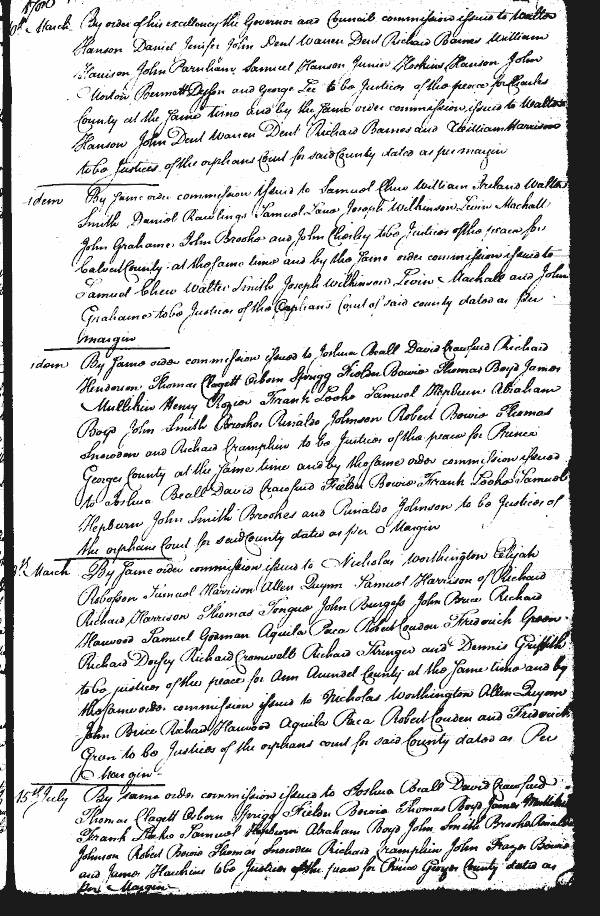 March By order of his excellency the Governor and Council commission issued to Walter
Hanson Daniel Jenifer John Dent Warren Dent Richard Barnes William
Harrison John Parnham, Samuel Hanson Junior Hoskins Hanson John
Bennett Dyson and George Lee to be Justices of the peace for Charles
County at the same time and by the same order commission issued to Walter
Hanson John Dent Warren Dent Richard Barnes and William Harrison
to be Justices of the orphans Court for said County dated as per margin
idem By same order commission issued to Samuel Chew William Ireland Walter
Smith Daniel Rawlings Samuel Lane Joseph Wilkinson Levin Mackall
John Grahame John Brooke and John Chesley to be Justices of the peace for
Calvert County at the same time and by the same order commission issued to
Samuel Chew Walter Smith Joseph Wilkinson Levin Mackall and John
Grahame to be Justices of the Orphans Court of said county dated as per
margin
idem By same order commission issued to Joshua Beall David Crawfurd Richard
Henderson Thomas Clagett Osborn Sprigg Fielder Bowie Thomas Boyd James
Mullikin Henry Rozier Frank Leeke Samuel Hepburn Abraham
Boyd John Smith Brookes Rinaldo Johnson Robert Bowie Thomas
Snowden and Richard Cramphin to be Justices of the peace for Prince
Georges County at the same time and by the same order commission issued
to Joshua Beall David Crawfurd Fielder Bowie Frank Leeke Samuel
Hepburn John Smith Brookes and Rinaldo Johnson to be Justices of
the orphans Court for said County dated as per Margin
March By same order commission issued to Nicholas Worthington Elijah
Robosson Samuel Harrison Allen Quynn Samuel Harrison of Richard
Richard Harrison Thomas Tongue John Burgess John Brice Richard
Harwood Samuel Godman Aquila Paca Robert Couden Fredorick Green
Richard Dorsey Richard Cromwell Richard Stringer and Dennis Griffith
to be justices of the peace for Ann Arundel County at the same time and by
the same order commission issued to Nicholas Worthington Allen Quynn
John Brice Richard Harwood Aquila Paca Robert Couden and Fredorick
Green to be Justices of the orphans court for said County dated as Per
Margin
15th July By same order commission issued to Joshua Beall David Crawfurd
Thomas Clagett Osborn Sprigg Fielder Bowie Thomas Boyd James Mullikin
Frank Leeke Samuel Hepburn Abraham Boyd John Smith Brookes Rinaldo
Johnson Robert Bowie Thomas Snowden Richard Cramphin John Frazer Bowie
and James Hawkins to be Justices of the peace for Prince Georges County dated as
per Margin